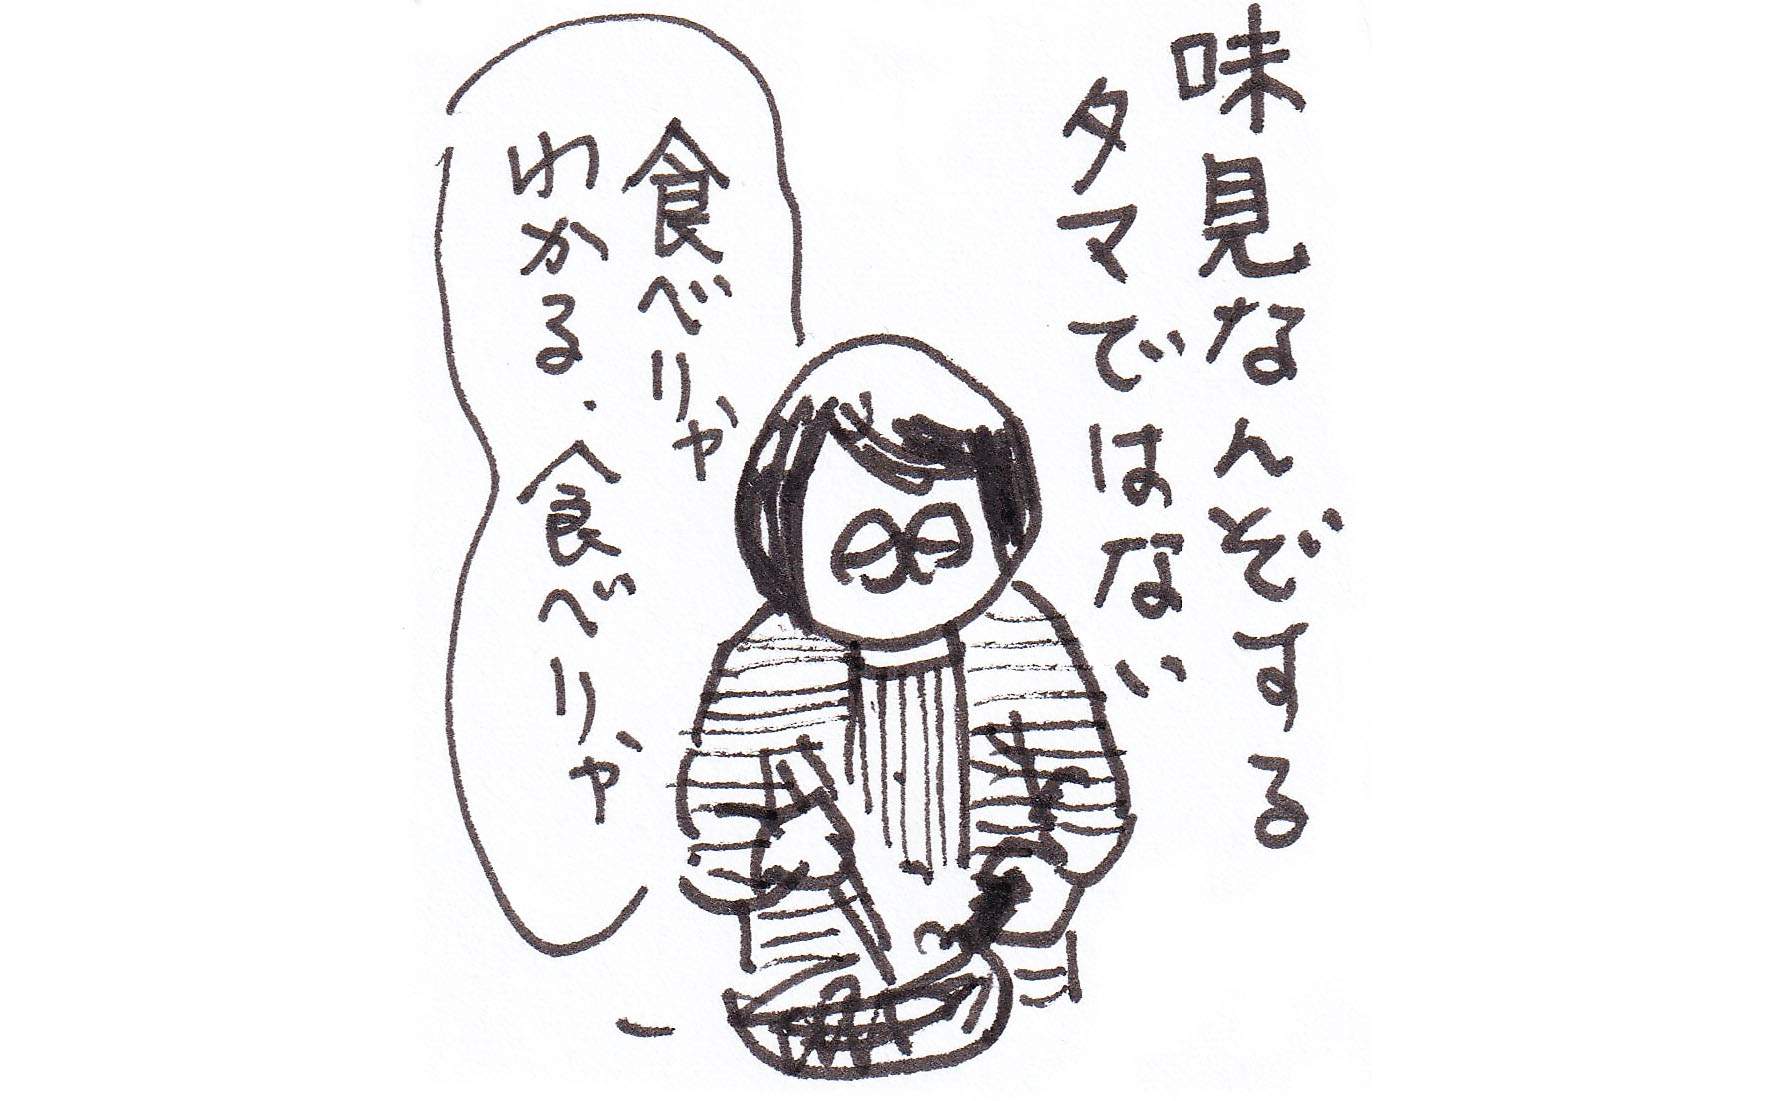 味見なんぞする
タマではない
食べりゃ
わかる．食べりゃ